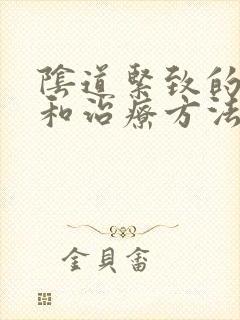 陰道緊致的
和治療方法
金貝畜